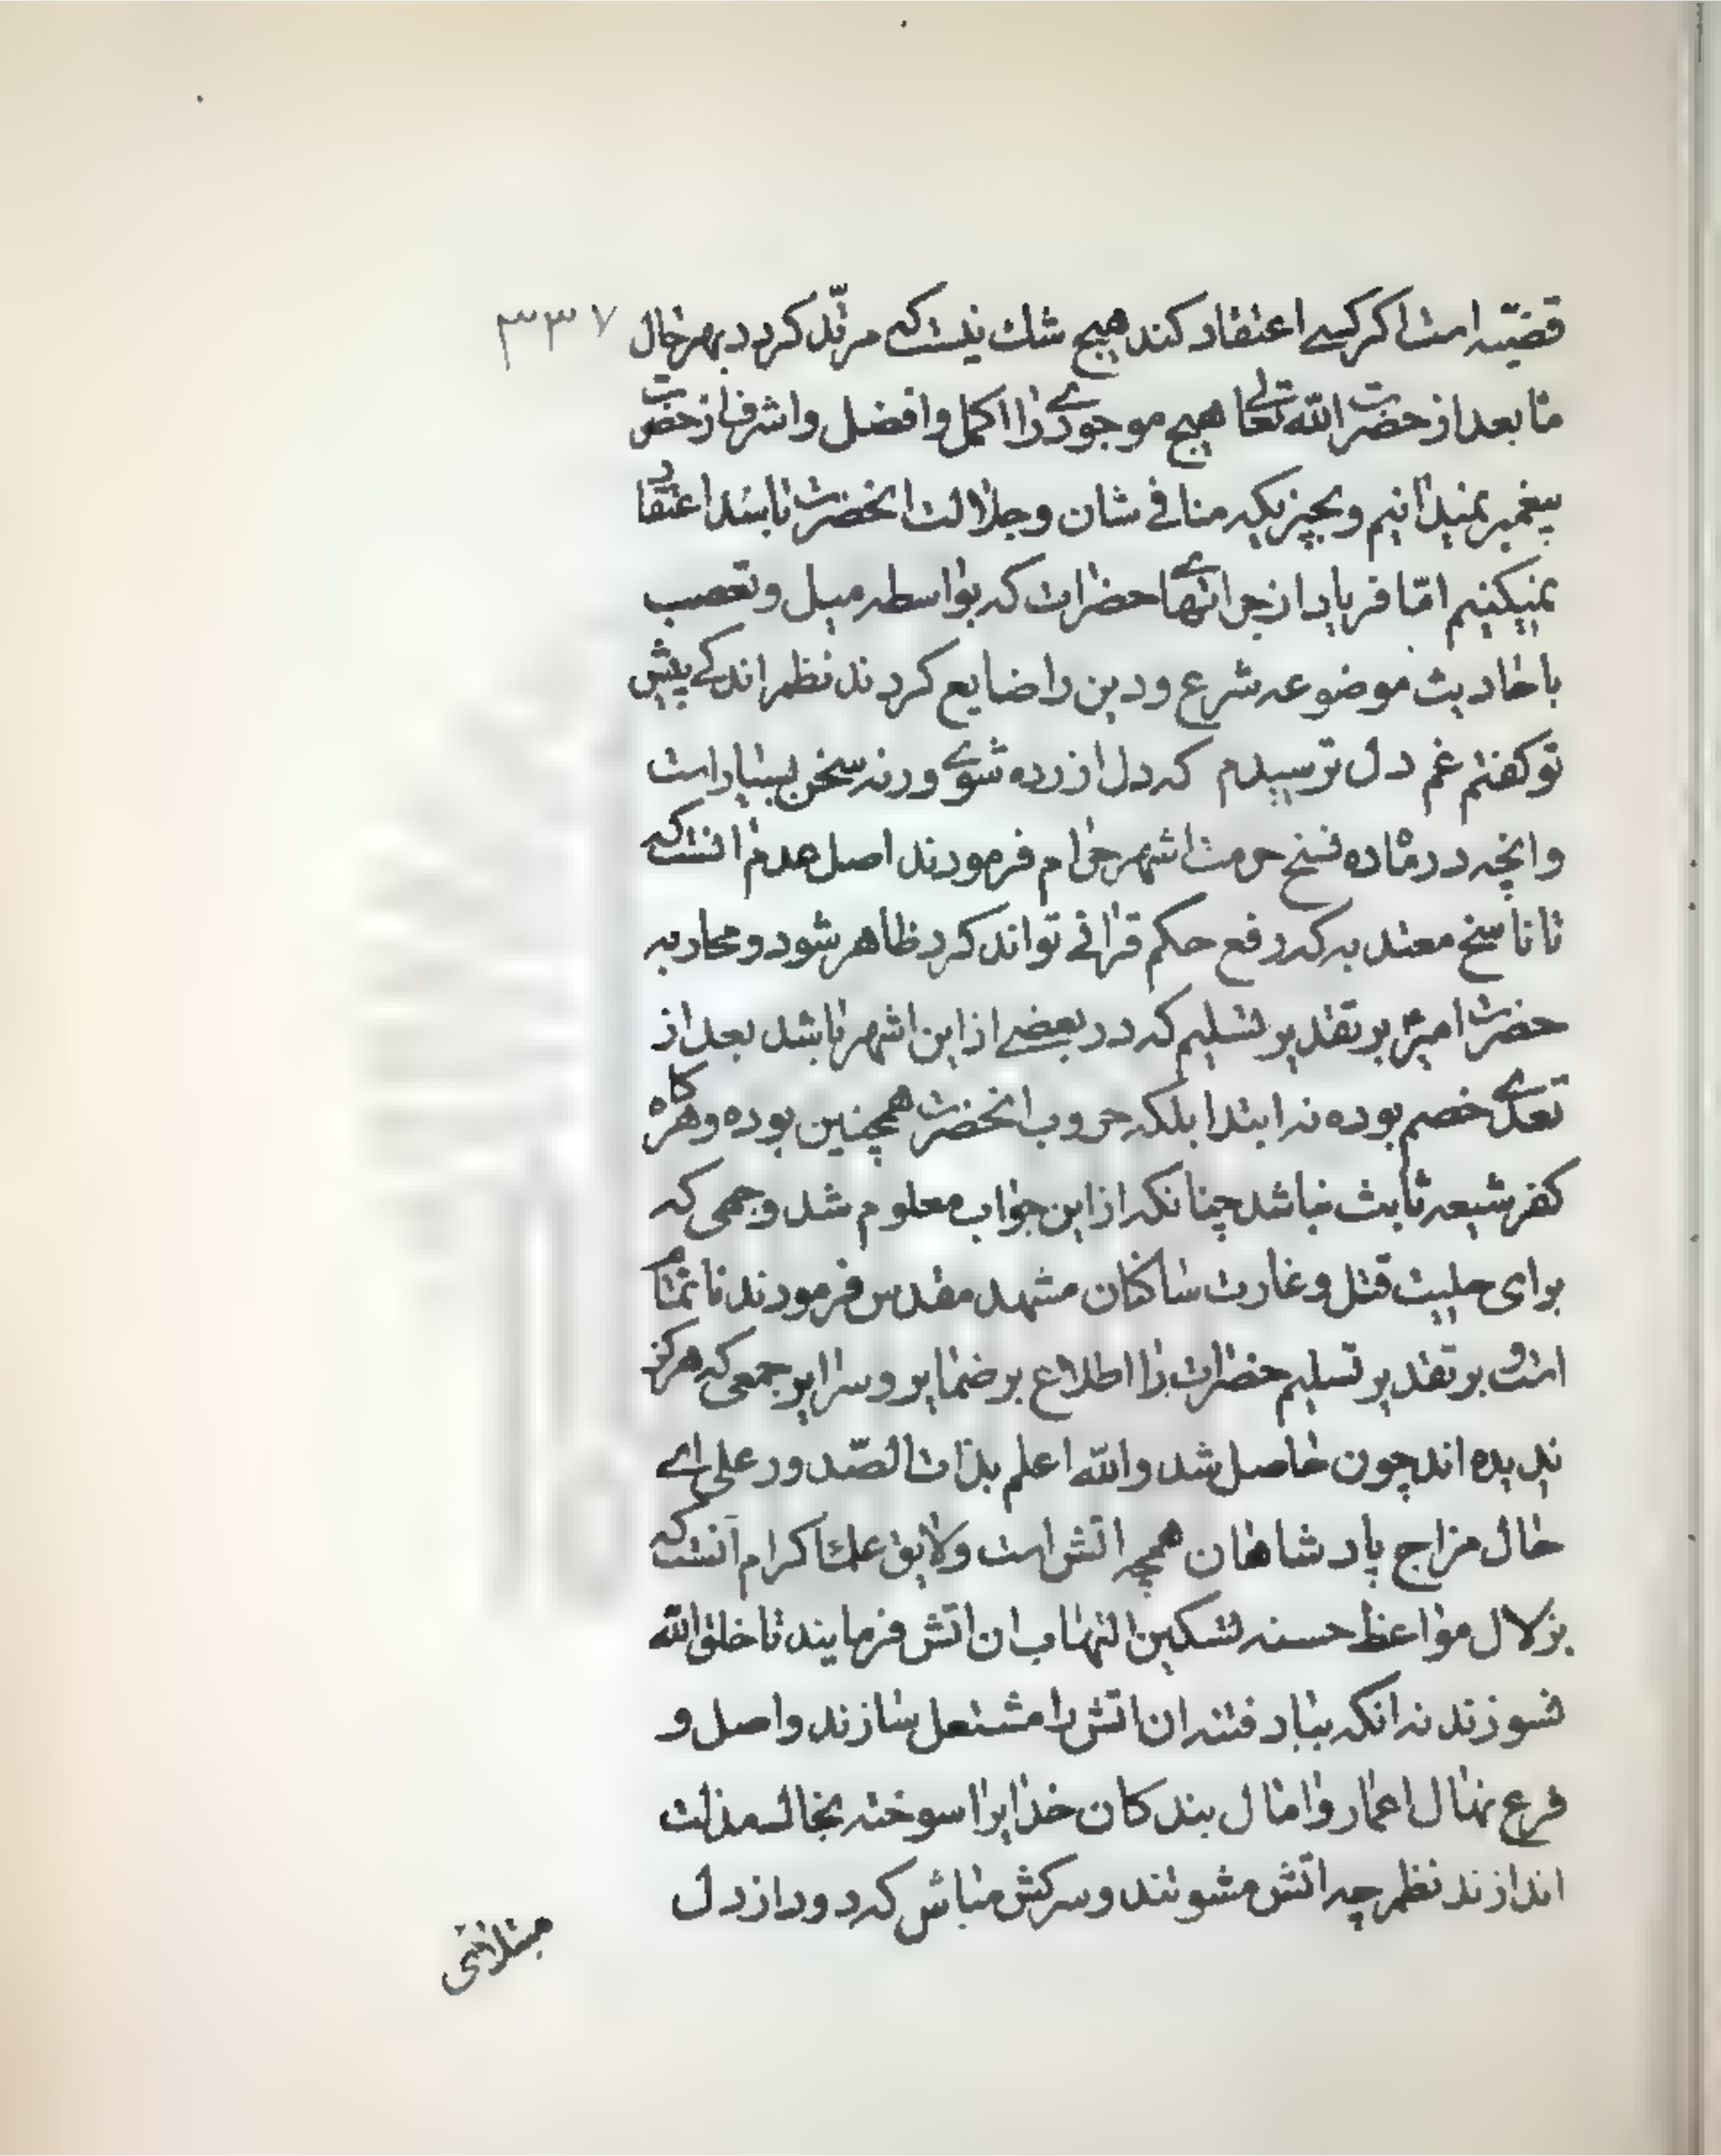 ۳۳۷
قضیّه است اکر کسے اعتقاد کند هیچ شك نیست که مرتّد کردد بهر حال
ما بعد از حضرت الله تعالے هیچ موجودے را اکمل و افضل و اشرف از حضرت
پیغمبر نمیدانیم و بچیزیکه منافے شان و جلالت انحضرت باشد اعتقاد
نمیکنیم امّا فریاد از جرائتهاے حضرات که بواسطه میل و تعصب
باحادیث موضوعه شرع و دین را ضایع کردند نظم اندکے پیش
تو کفتم غم دل ترسیدم که دل ازرده شوے ورنه سخن بسیار است
و انچه در ماده نسخ حرمت اشهر حرام فرمودند اصل عدم انست که
تا ناسخ معتد به که رفع حکم قرانے تواند کرد ظاهر شود و محاربه
حضرت امیر بر تقدیر تسلیم که در بعضے از این اشهر باشد بعد از
تعدے خصم بوده نه ابتدا بلکه حروب انحضرت همچنین بوده و هرکاه
کفر شیعه ثابت نباشد چنانکه از این جواب معلوم شد وجهی که
برای حلیت قتل و غارت ساکنان مشهد مقدس فرمودند ناتمام
است و بر تقدیر تسلیم حضرات را اطلاع بر ضمایر و سرایر جمعی که هرکز
ندیده اند چون حاصل شد والله اعلم بذات الصّدور علی اے
حال مزاج پادشاهان همچه اتش است و لایق علما کرام آنست که
بزلال مواعظ حسنه تسکین التهاب ان اتش فرمایند تا خلق الله
نسوزند نه انکه بباد فتنه ان اتش را مشتعل سازند و اصل و
فرع نهال اعمار و امال بندکان خدایرا سوخته بخاك مذلت
اندازند نظم چه اتش مشو تند و سرکش مباش که دود از دل
مبتلائی